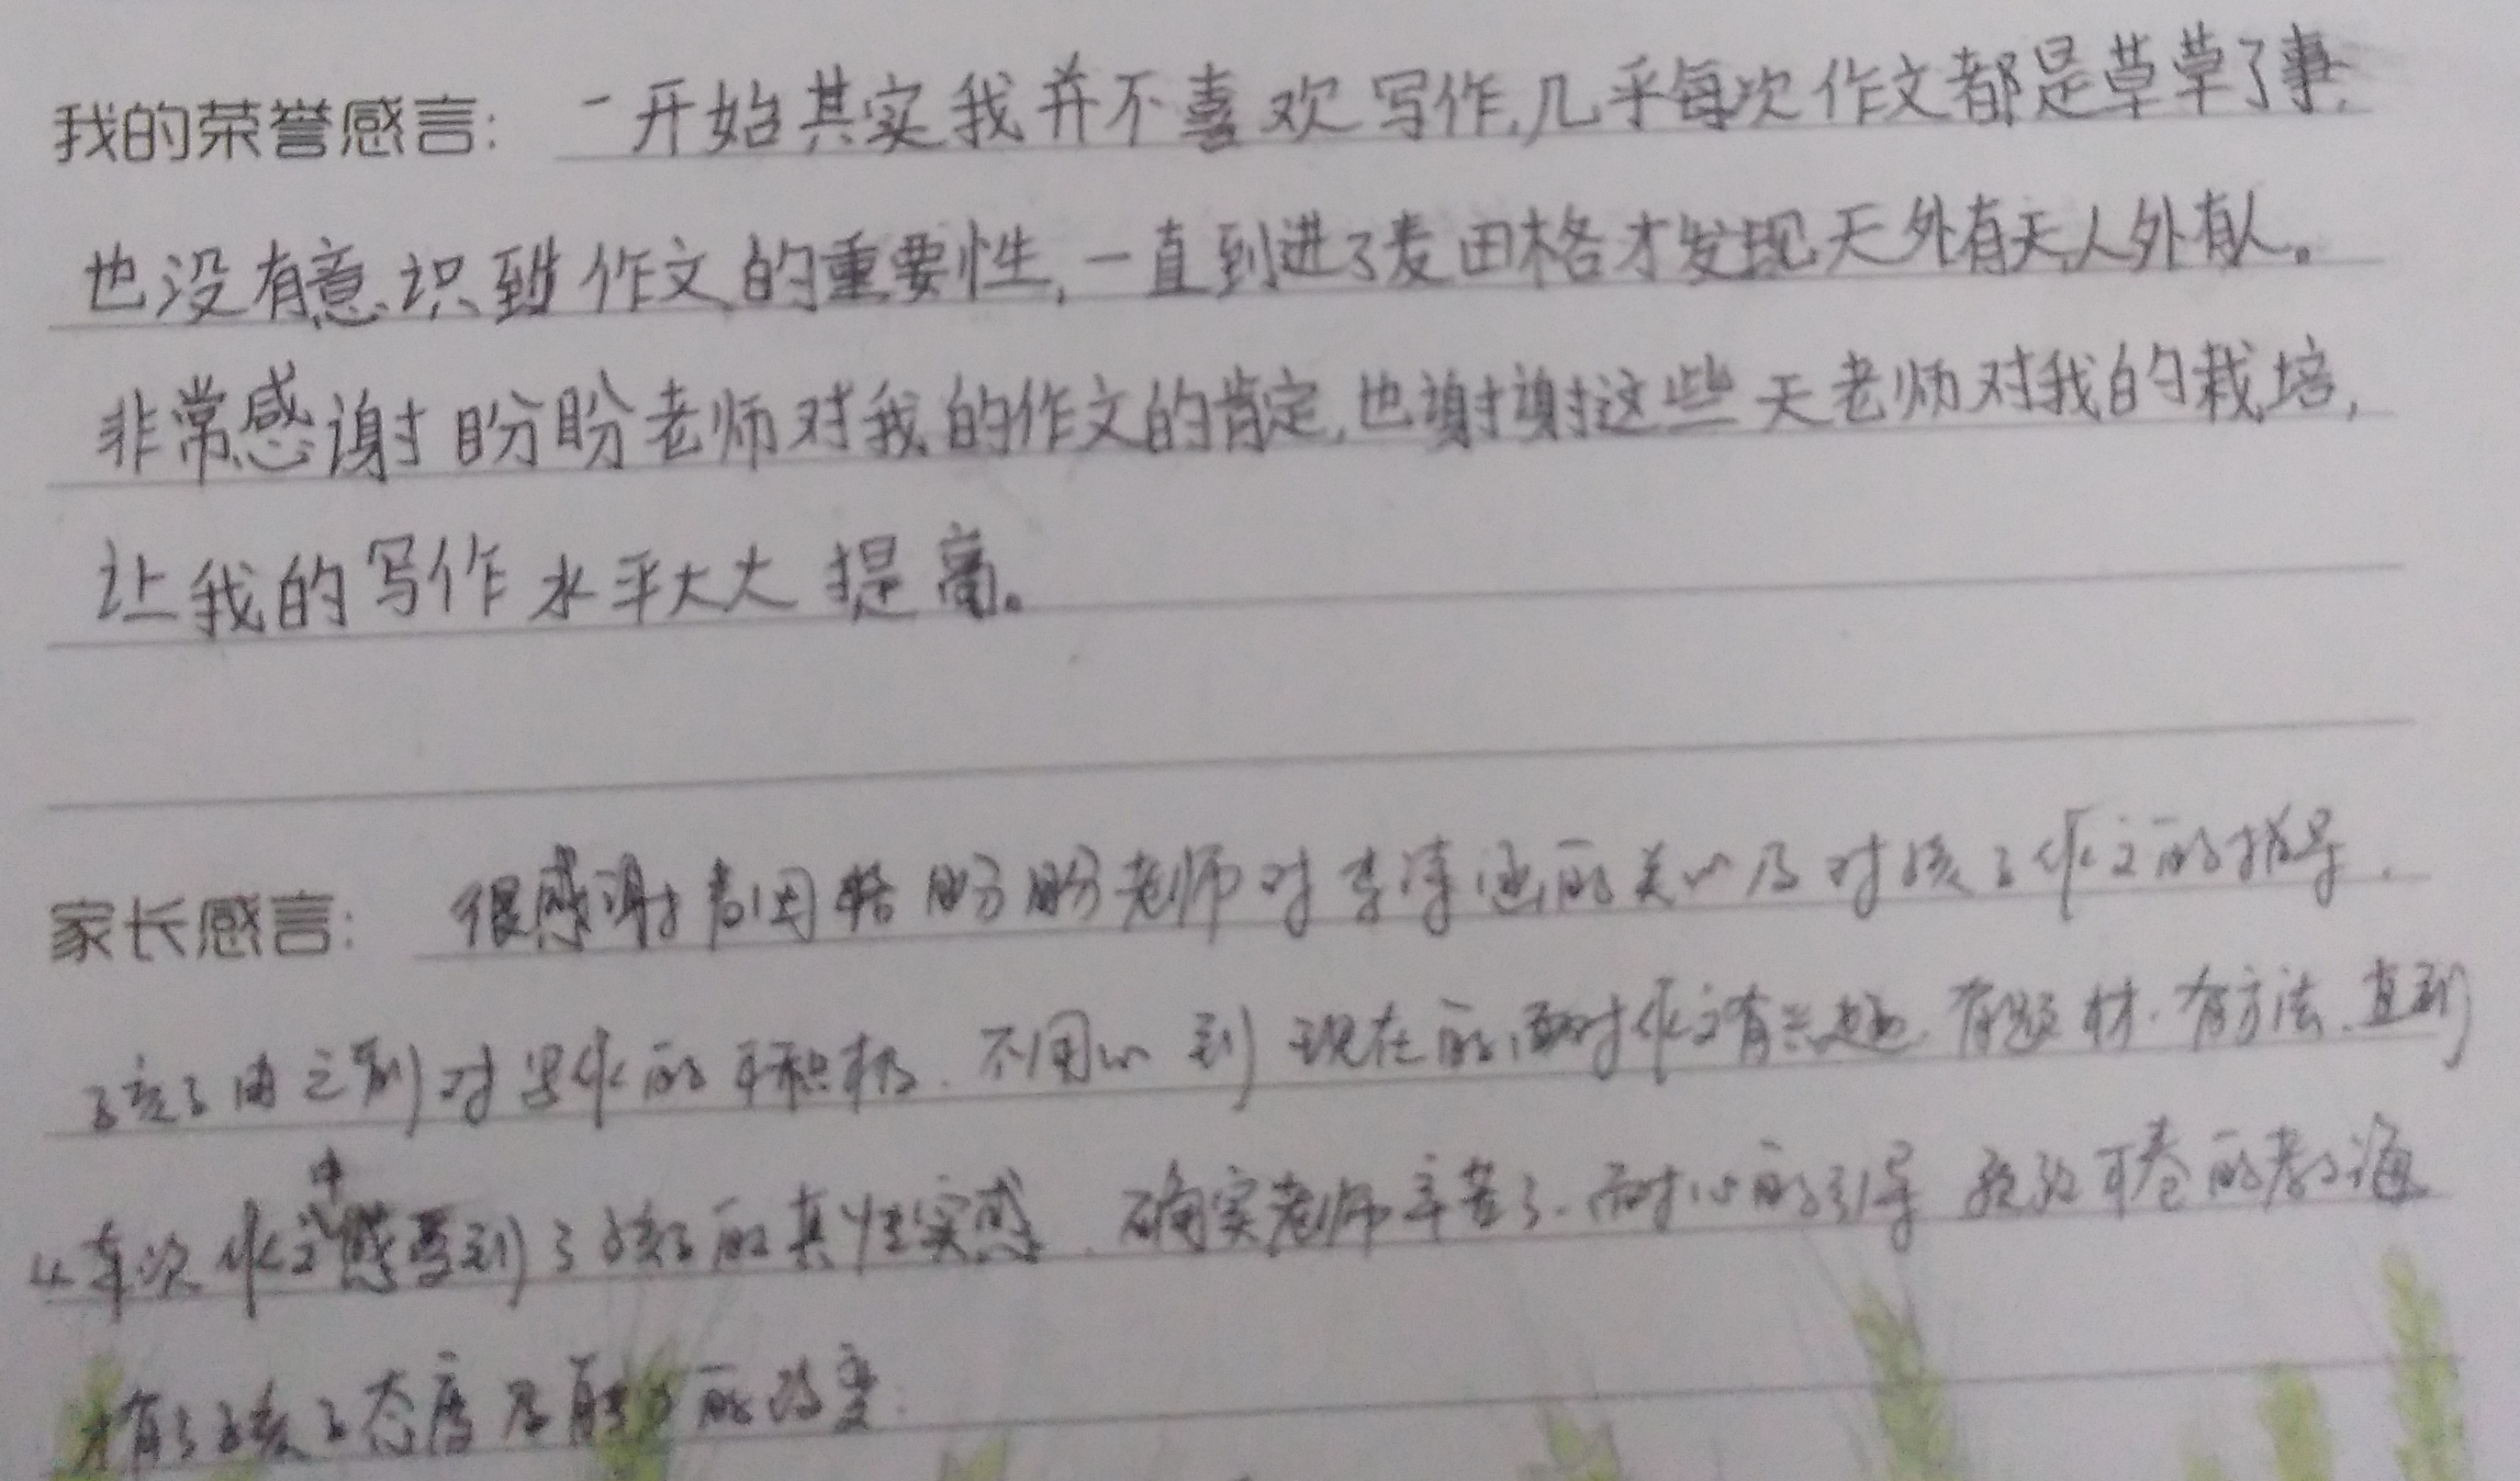 我的荣誉感言：一开始其实我并不喜欢写作,几乎每次作文都是草草了事,
也没有意识到作文的重要性,一直到进了麦田格才发现天外有天,人外有人。
非常感谢盼盼老师对我的作文的肯定,也谢谢这些天老师对我的栽培,
让我的写作水平大大提高。
家长感言：很感谢麦田格盼盼老师对李涵的关心及对孩子作文的指导.
孩子由之前对写作的不积极.不用心到现在的面对作文有兴趣.有题材.有方法.直到
从每次作文中感受到了孩子的真性实感.确实老师辛苦了.耐心的引导 孜孜不卷的教诲
才有了孩子态度及能力的改变.